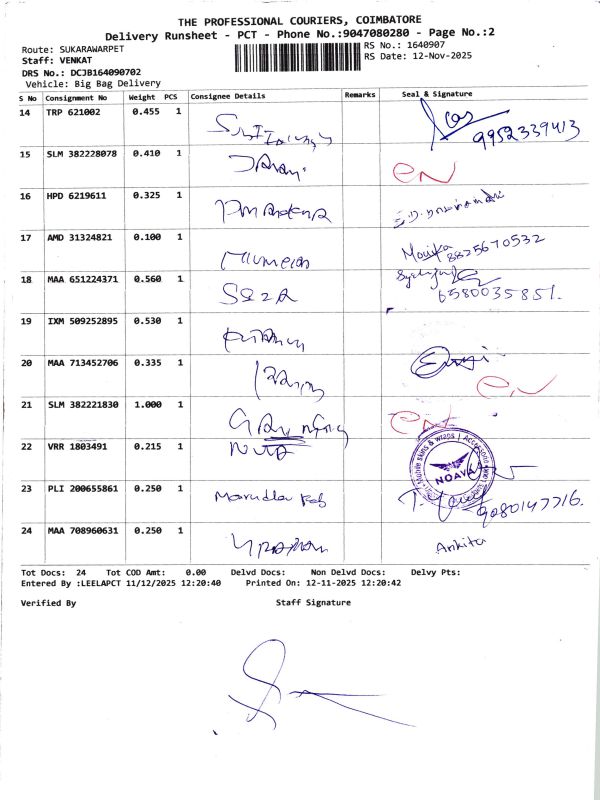 THE PROFESSIONAL COURIERS, COIMBATORE
Delivery Runsheet - PCT - Phone No.:9047080280 - Page No.:2
Route: SUKARAWARPET
RS No.: 1640907
Staff: VENKAT
RS Date: 12-Nov-2025
DRS No.: DCJB164090702
Vehicle: Big Bag Delivery
S No Consignment No Weight PCS Consignee Details Remarks Seal & Signature
14 TRP 621002 0.455 1
9952339413
15 SLM 382228078 0.410 1
16 HPD 6219611 0.325 1
17 AMD 31324821 0.100 1
Monika
8825670532
18 MAA 651224371 0.560 1
6580035851.
19 IXM 509252895 0.530 1
20 MAA 713452706 0.335 1
21 SLM 382221830 1.000 1
22 VRR 1803491 0.215 1
NOAVA
23 PLI 200655861 0.250 1
9080147716.
24 MAA 708960631 0.250 1 Ankita
Tot Docs: 24 Tot COD Amt: 0.00 Delvd Docs: Non Delvd Docs: Delvy Pts:
Entered By :LEELAPCT 11/12/2025 12:20:40 Printed On: 12-11-2025 12:20:42
Verified By Staff Signature